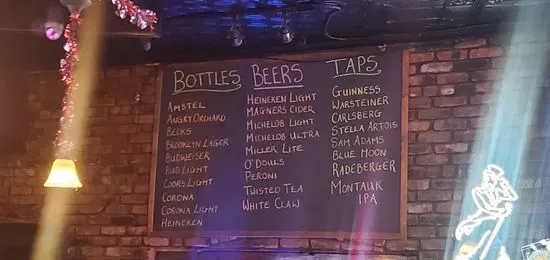 BOTTLES BEERS TAPS
AMSTEL
ANGRY ORCHARD
BECKS
BROOKLYN LAGER
BUDWEISER
BUD LIGHT
COORS LIGHT
CORONA
CORONA LIGHT
HEINEKEN
HEINEKEN LIGHT
MAGNERS CIDER
MICHELOB LIGHT
MICHELOB ULTRA
MILLER LITE
O'DOULS
PERONI
TWISTED TEA
WHITE CLAW
GUINNESS
WARSTEINER
CARLSBERG
STELLA ARTOIS
SAM ADAMS
BLUE MOON
RADEBERGER
MONTAUK
IPA